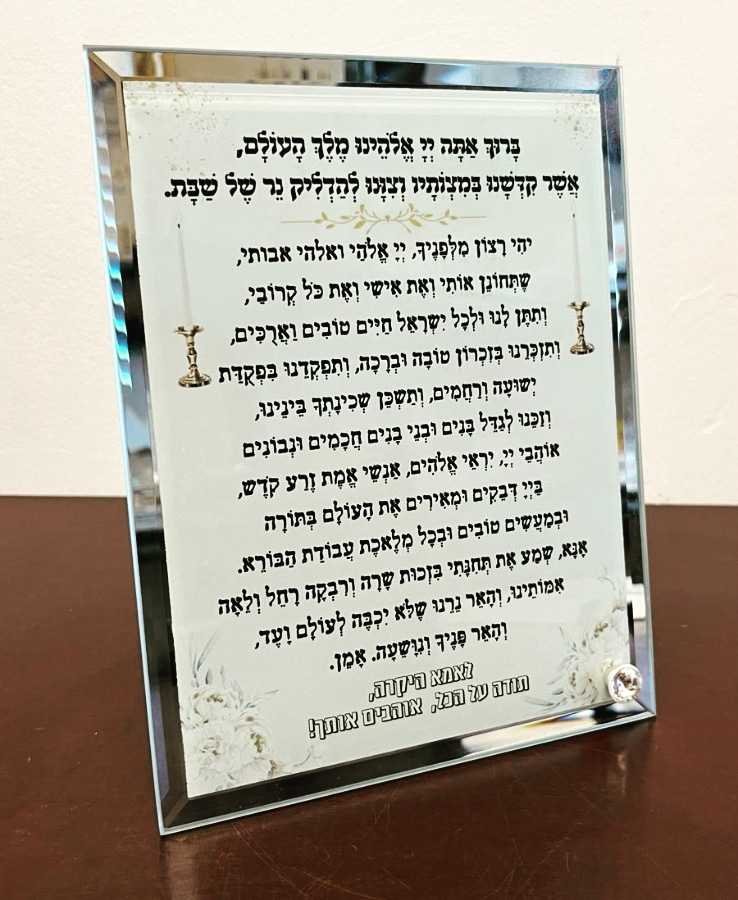 בָּרוּךְ אַתָּה יְיָ אֱלֹהֵינוּ מֶלֶךְ הָעוֹלָם,
אֲשֶׁר קִדְּשָׁנוּ בְּמִצְוֹתָיו וְצִוָּנוּ לְהַדְלִיק נֵר שֶׁל שַׁבָּת.
יְהִי רָצוֹן מִלְּפָנֶיךָ, יְיָ אֱלֹהַי ואלהי אבותי,
שֶׁתְּחוֹנֵן אוֹתִי וְאֶת אִישִׁי וְאֶת כֹּל קְרוֹבַי,
וְתִתֵּן לָנוּ וּלְכָל יִשְׂרָאֵל חַיִּים טוֹבִים וַאֲרֻכִּים,
וְתִזְכְּרֵנוּ בְּזִכְרוֹן טוֹבָה וּבְרָכָה, וְתִפְקְדֵנוּ בִּפְקֻדַּת
יְשׁוּעָה וְרַחֲמִים, וְתַשְׁכֵּן שְׁכִינָתְךָ בֵּינֵינוּ,
וְזַכֵּנוּ לְגַדֵּל בָּנִים וּבְנֵי בָנִים חֲכָמִים וּנְבוֹנִים
אוֹהֲבֵי יְיָ, יִרְאֵי אֱלֹהִים, אַנְשֵׁי אֱמֶת זֶרַע קֹדֶשׁ,
בַּיְיָ דְּבֵקִים וּמְאִירִים אֶת הָעוֹלָם בְּתּוֹרָה
וּבְמַעֲשִׂים טוֹבִים וּבְכָל מְלֶאכֶת עֲבוֹדַת הַבּוֹרֵא.
אָנָּא, שְׁמַע אֶת תְּחִנָּתִי בִּזְכוּת שָׂרָה וְרִבְקָה רָחֵל וְלֵאָה
אִמּוֹתֵינוּ, וְהָאֵר נֵרֵנוּ שֶׁלֹּא יִכְבֶּה לְעוֹלָם וָעֶד,
וְהָאֵר פָּנֶיךָ וְנִוָּשֵׁעָה. אָמֵן.
לאמא היקרה,
תודה על הכל, אוהבים אותך!